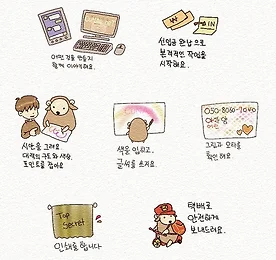 어떤 걸을 만들지
함께 이야기해요.
선입금 완납 으로
본격적인 작업을
시작해요.
IN
시안을 그려요
대략의 구도와 색을,
포인트를 잡아요
색을 입히고,
글씨를 쓰지요.
050-8060-7040
그림과 오타를
확인해요
Top
Secret
인쇄를 합니다
택배로
안전하게
보내드려요.